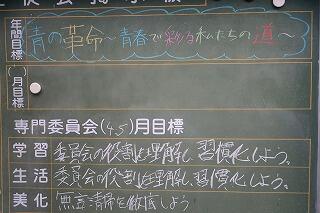 年間目標 青の革命～青春で彩る私たちの道～
( )月目標
専門委員会(4,5)月目標
学習 委員会の役割を理解し、習慣化しよう。
生活 委員会の役割を理解し、習慣化しよう。
美化 無言清掃を徹底しよう